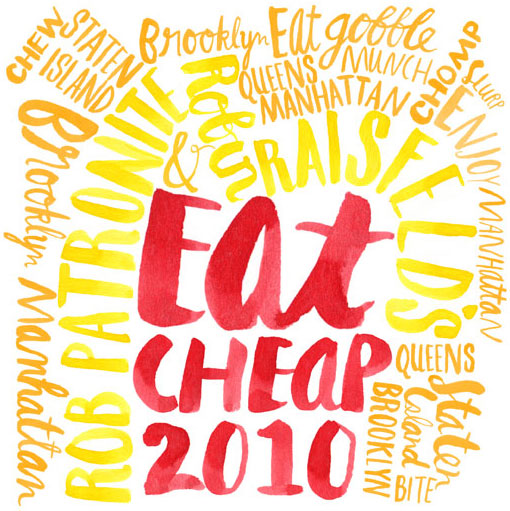 CHEW
STATEN
ISLAND
Brooklyn
Eat
gobble
QUEENS
MUNCH
MANHATTAN
CHOMP
SLURP
ENJOY
MANHATTAN
Brooklyn
Manhattan
ROB PATRONITE
&
Robin
RAISFELD'S
Eat
CHEAP
2010
QUEENS
Staten
Island
BROOKLYN
BITE